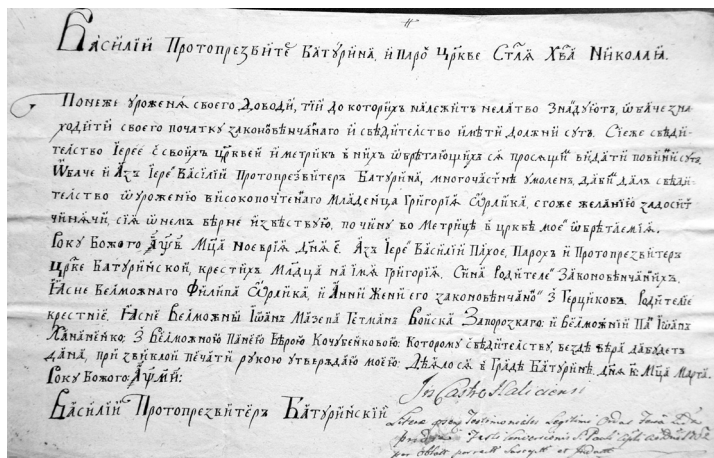 Василїй Протопрезвите҃ Батурина, и паро҃ Цр҃кве Ст҃лѧ Хв҃а Николаѧ.
Понеже уроженѧ своего доводи, тїи до которихъ належитъ не латво знайдуютъ, ѡбаче зна-
ходити своего початку законовѣнчаннаго и свѣдителство имѣти должни сутъ. Сїеже свѣди-
телство Їерее с своихъ црквей и метрик в нихъ ѡбрѣтающихъ сѧ просѧщи҃ видати повинни сутъ
Ѡбаче и Азъ Їере҃ Васїлїй Протопрезвитеръ Батурина, многочастне умолен, даби далъ свѣди-
телство ѡ уроженїю високопочтенаго младенца Григорїѧ Ѡрлика, его же желанїю задосит
чинѧчи, сїѧ ѡ нем вѣрне извѣствую, по чину во Метрице в церквѣ мое҃ ѡбрѣтаемїѧ.
Року Божого ҂аѱв҃. Мц҃а Ноеврїѧ днѧ е҃. Азъ Їере҃ Василїй Пахое, Парохъ и Протопрезвитеръ
Цр҃кве Батуринской, крестихъ младца на имѧ Григорїѧ. Сина родителе҃ законовѣнчанихъ.
Ѩсне Велможнаго Филипа Ѡрлика, и Анни жени его законовѣнчано҃ З Герциковъ. Родителїе
крестнїе, Ѩсне Велможны Їѡанъ Мазепа Гетманъ Войска Запорозкаго: и Велможнїй Па҃ Їѡанъ
Нананенко: З Велможною Панею Вѣрою Кочубейковою: Которому свѣдителству, вездѣ вѣра да будетъ
дана, при звиклой печати рукою утверждаю моею: Дѣялосѧ в Градѣ Батуринѣ, днѧ н҃: Мц҃а Марта.
Року Божого: ҂аѱмн҃:
Василїй Протопрезвїтеръ Батуринскїй
In Castro Haliciensi
Litera praesens Testimoniales Legitimi
Festo Conversionis S. Pauli
per Oblat